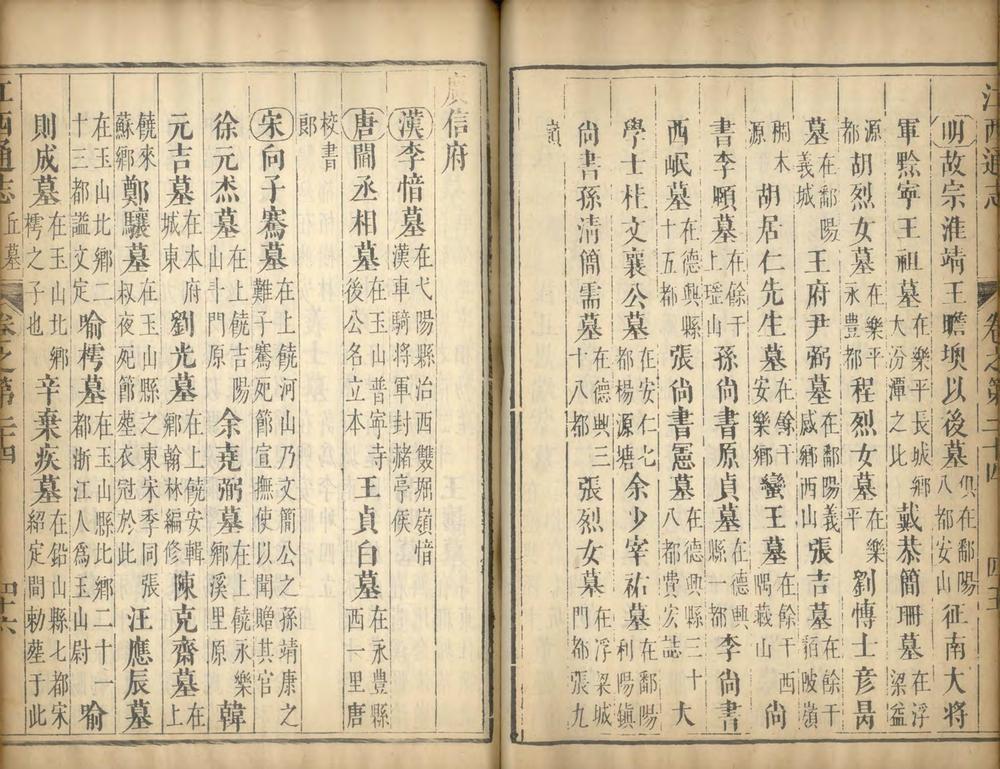 江西通志 卷之第三十四 四十五
明故宗淮靖王瞻墺以後墓俱在鄱陽八都安山征南大將
軍黥寧王祖墓在樂平長城鄉大汾潭之北戴恭簡珊墓在浮梁益
源都胡烈女墓在樂平永豐都程烈女墓在樂平劉博士彦昺
墓在鄱陽義城王府尹弼墓在鄱陽義咸鄉西山張吉墓在餘干
源桐木胡居仁先生墓在餘干安樂鄉蠻王墓在餘干西隅藏山尚
書李頤墓在餘干上瑶山孫尚書原貞墓在德興縣一都李尚書
西岷墓在德興縣十五都張尚書憲墓在德興三十八都費宏誌大
學士桂文襄公墓在安仁七都楊源塘余少宰祐墓在鄱陽利陽鎮
尚書孫清簡需墓在德興三十八都張烈女墓在浮梁城門都張九
嶺
廣信府
漢李愔墓在弋陽縣治西雙堀嶺愔漢車騎將軍封赭亭侯
唐閻丞相墓在玉山普寧寺後公名立本王貞白墓在永豐縣西一里唐
校書郎
宋向子騫墓在上饒河山乃文簡公之孫靖康之難子騫死節宣撫使以聞贈其官
徐元杰墓在上饒吉陽山斗門原余堯弼墓在上饒永樂鄉溪里原韓
元吉墓在本府城東劉光墓在上饒安輯鄉翰林編修陳克齋墓在上
饒來蘇鄉鄭驤墓在玉山縣之東宋季同張叔夜死節塟衣冠於此汪應辰墓
在玉山北鄉二十三都謚文定喻樗墓在玉山縣北鄉二十一都浙江人為玉山尉喻
則成墓在玉山北鄉樗之子也辛棄疾墓在鉛山縣七都宋紹定間勅塟于此
江西通志 丘墓 卷之第三十四 四十六